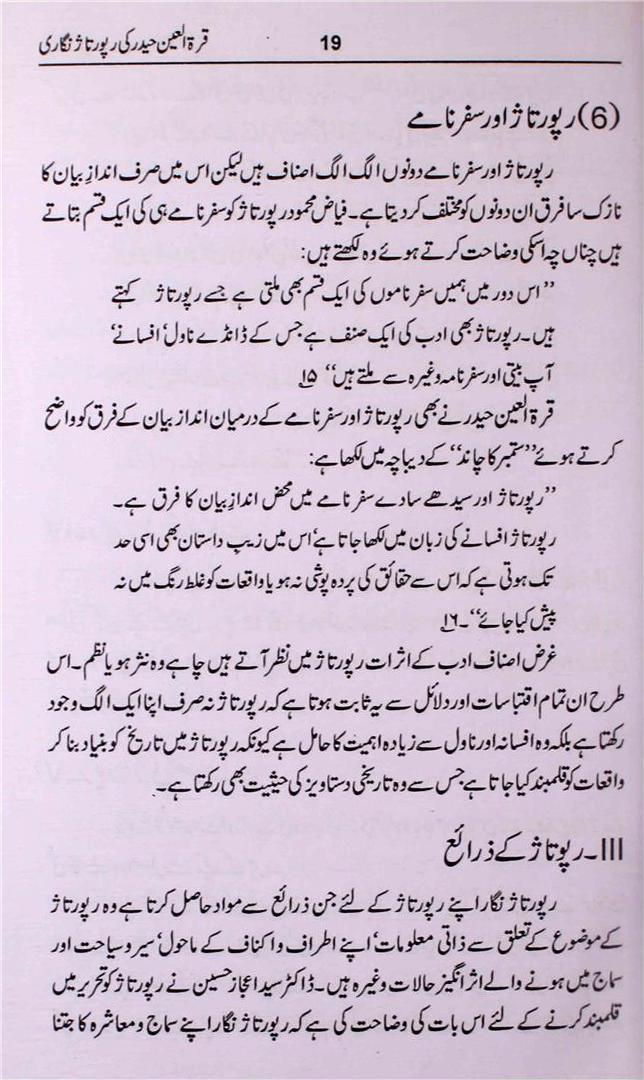 قرۃ العین حیدر کی رپورتاژ نگاری 19
(6) رپورتاژ اور سفرنامے
رپورتاژ اور سفرنامے دونوں الگ الگ اصناف ہیں لیکن اس میں صرف اندازِ بیان کا
نازک سا فرق ان دونوں کو مختلف کر دیتا ہے۔ فیاض محمود رپورتاژ کو سفرنامے ہی کی ایک قسم بتاتے
ہیں چناں چہ اسکی وضاحت کرتے ہوئے وہ لکھتے ہیں:
’’اس دور میں ہمیں سفرناموں کی ایک قسم بھی ملتی ہے جسے رپورتاژ کہتے
ہیں۔ رپورتاژ بھی ادب کی ایک صنف ہے جس کے ڈانڈے ناول‘ افسانے‘
آپ بیتی اور سفرنامہ وغیرہ سے ملتے ہیں‘‘ ۱۵
قرۃ العین حیدر نے بھی رپورتاژ اور سفرنامے کے درمیان انداز بیان کے فرق کو واضح
کرتے ہوئے ’’ستمبر کا چاند‘‘ کے دیباچہ میں لکھا ہے:
’’رپورتاژ اور سیدھے سادے سفرنامے میں محض اندازِ بیان کا فرق ہے۔
رپورتاژ افسانے کی زبان میں لکھا جاتا ہے‘ اس میں زیبِ داستان بھی اسی حد
تک ہوتی ہے کہ اس سے حقائق کی پردہ پوشی نہ ہو یا واقعات کو غلط رنگ میں نہ
پیش کیا جائے‘‘۔ ۱۶
غرض اصناف ادب کے اثرات رپورتاژ میں نظر آتے ہیں چاہے وہ نثر ہو یا نظم۔ اس
طرح ان تمام اقتباسات اور دلائل سے یہ ثابت ہوتا ہے کہ رپورتاژ نہ صرف اپنا ایک الگ وجود
رکھتا ہے بلکہ وہ افسانہ اور ناول سے زیادہ اہمیت کا حامل ہے کیونکہ رپورتاژ میں تاریخ کو بنیاد بنا کر
واقعات کو قلمبند کیا جاتا ہے جس سے وہ تاریخی دستاویز کی حیثیت بھی رکھتا ہے۔
III۔ رپوتاژ کے ذرائع
رپورتاژ نگار اپنے رپورتاژ کے لئے جن ذرائع سے مواد حاصل کرتا ہے وہ رپورتاژ
کے موضوع کے تعلق سے ذاتی معلومات‘ اپنے اطراف و اکناف کے ماحول‘ سیر و سیاحت اور
سماج میں ہونے والے اثر انگیز حالات وغیرہ ہیں۔ ڈاکٹر سید اعجاز حسین نے رپورتاژ کو تحریر میں
قلمبند کرنے کے لئے اس بات کی وضاحت کی ہے کہ رپورتاژ نگار اپنے سماج و معاشرہ کا جتنا